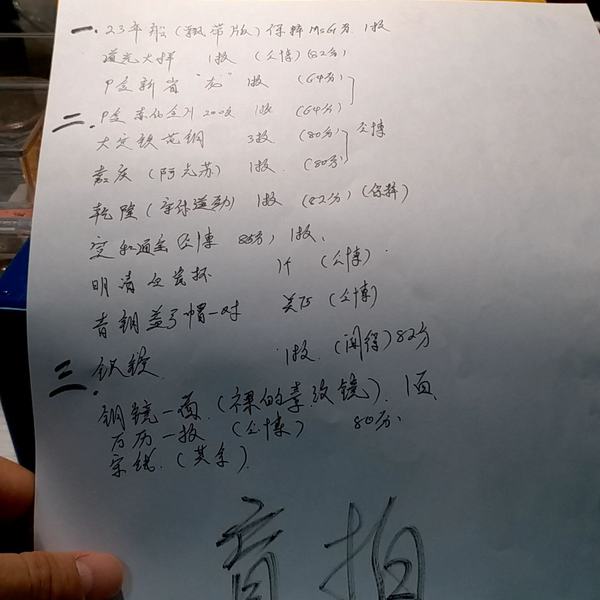 一. 23年船(飘带版)保粹MS61分 1枚
道光大样 1枚 (公博)(82分)
P金新省"龙" 1枚 (64分)
二. P金 200文 1枚 (64分)
大定铁范铜 3枚 (80分) 公博
嘉庆 (阿克苏) 1枚. (80分)
乾隆 (字体遒劲) 1枚 (82分) (保粹)
宣和通宝 公博 85分, 1枚.
明清 瓷杯 1个 (公博).
青铜盖弓帽一对 美品 (公博)
三. 银锭 1枚. (闻得) 82分
铜镜一面. (裸的素纹镜). 1面
万历一枚 (公博) 80分.
宋钱. (其余).
盲拍